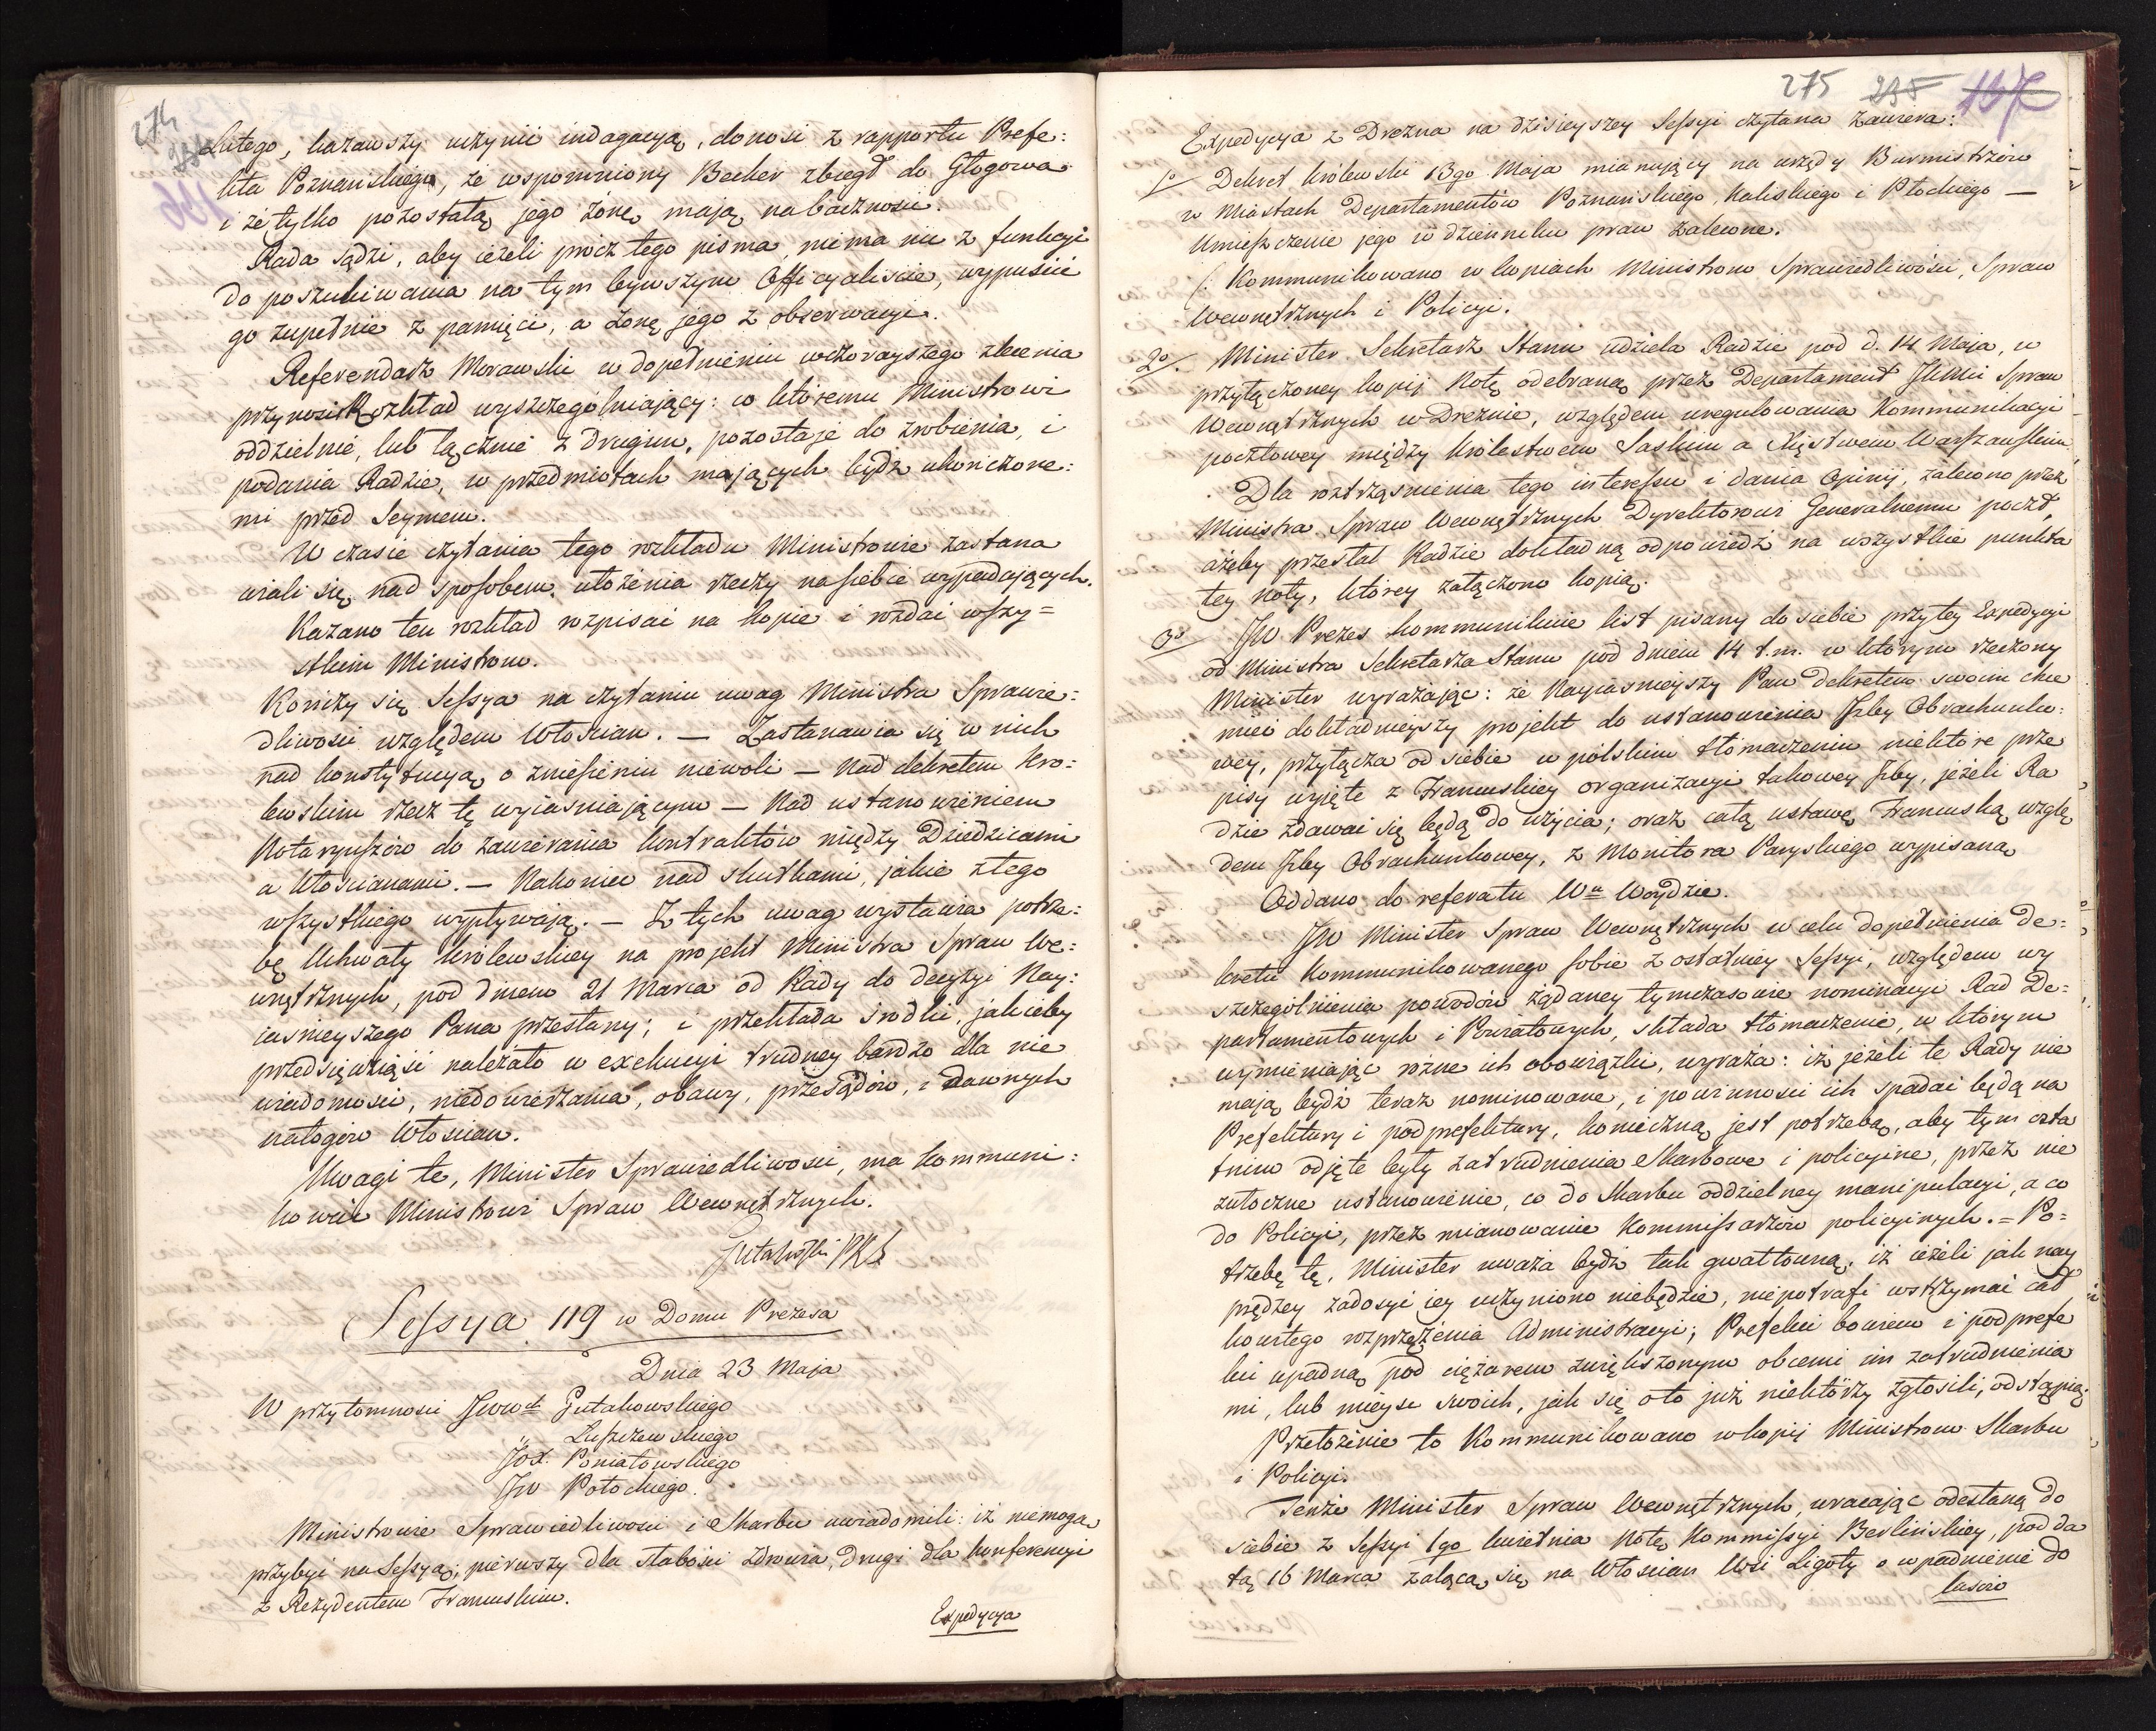 274
156
Lutego, kazawszy uczynić indagacyą, donosi z rapportu Prefe:
kta Poznanskiego, że wspomniony Becker zbiegł do Głogowa
i że tylko pozostałą jego żonę mają na baczności.
Rada sądzi, aby ieżeli prócz tego pisma, niema nic z funkcyi
do poszukiwania na tym bywszym Officyaliscie, wypuścić
go zupełnie z pamięci, a żonę jego z obserwacyi.
Referendarz Morawski w dopełnieniu wczorayszego zlecenia
przynosi Rozkład wyszczególniający: co któremu Ministrowi
oddzielnie, lub łącznie z drugim, pozostaje do zrobienia, i
podania Radzie, w przedmiotach mających bydź ukończone:
mi przed Seymem.
W czasie czytania tego rozkładu Ministrowie zastana
wiali się nad sposobem ułożenia rzeczy na siebie wypadających.
Kazano ten rozkład rozpisać na kopie i rozdać wszy=
stkim Ministrom.
Kończy się Sessya na czytaniu uwag Ministra Sprawie:
dliwości względem Włościan. — Zastanawia się w nich
nad konstytucyą o zniesieniu niewoli — Nad dekretem Kró:
lewskim rzecz tę wyiaśniającym — Nad ustanowieniem
Notaryuszów do zawierania kontraktów między Dziedzicami
a Włościanami. — Nakoniec nad skutkami, jakie z tego
wszystkiego wypływają. — Z tych uwag wystawia potrze:
bę Uchwały królewskiey na projekt Ministra Spraw We:
wnętrznych, pod dniem 21 Marca od Rady do decyzyi Nay:
iaśnieyszego Pana przesłany; i przekłada środki, jakieby
przedsięwziąść należało w exekucyi trudney bardzo dla nie
wiadomości, niedowierzania, obawy, przesądów, i dawnych
nałogów Włościan.
Uwagi te, Minister Sprawiedliwości, ma kommuni:
kować Ministrowi Spraw Wewnętrznych.
Gutakowski PRS
Sessya 119 w Domu Prezesa
Dnia 23 Maja
W przytomności JWWch Gutakowskiego
" Łuszczewskiego
Joż. Poniatowskiego
JW Potockiego.
Ministrowie Sprawiedliwości i Skarbu uwiadomili: iż niemogą
przybyć na Sessyą; pierwszy dla słabości zdrowia, drugi dla konferencyi
z Rezydentem Francuskim.
Expedycya
275 235 137
Expedycya z Drezna na dzisieyszey Sessyi czytana zawiera:
1o Dekret królewski 13go Maja mianujący na urzędy Burmistrzów
w Miastach Departamentów Poznańskiego, Kaliskiego i Płockiego —
Umieszczenie jego w dzienniku praw zalecone.
/: Kommunikowano w kopiach Ministrom Sprawiedliwości, Spraw
Wewnętrznych i Policyi.
2o. Minister Sekretarz Stanu udziela Radzie pod d. 14 Maja, w
przyłączoney kopij Notę odebraną przez Departament Spraw
Wewnętrznych w Dreznie, względem uregulowania Kommunikacyi
pocztowey między Królestwem Saskim a Xięstwem Warszawskim,
Dla roztrząśnienia tego interessu i dania Opinij, zalecono przez
Ministra Spraw Wewnętrznych Dyrektorowi Generalnemu poczt,
ażeby przesłał Radzie dokładną odpowiedź na wszystkie punkta
tey noty, którey załączono kopią.
3o JW Prezes kommunikuie list pisany do siebie przy tey Expedycyi
od Ministra Sekretarza Stanu pod dniem 14 t.m. w którym rzeczony
Minister wyrażając: że Nayiaśnieyszy Pan dekretem swoim chce
mieć dokładnieyszy projekt do ustanowienia Izby Obrachunko:
wey, przyłącza od siebie w polskim tłomaczeniu niektóre prze
pisy wyięte z Francuskiey organizacyi takowey Izby, jeżeli Ra
dzie zdawać się będą do użycia; oraz całą ustawę Francuską wzglę
dem Izby Obrachunkowey, z Monitora Paryskiego wypisaną
Oddano do referatu Wu Woydzie.
JW Minister Spraw Wewnętrznych w celu dopełnienia De:
kretu kommunikowanego sobie z ostatniey Sessyi, względem wy
szczególnienia powodów żądaney tymczasowie nominacyi Rad De:
partamentowych i Powiatowych, składa tłomaczenie, w którym
wymieniając różne ich obowiązki, wyraża: iż jeżeli te Rady nie
mają bydź teraz nominowane, i powinności ich spadać będą na
Prefektury i podprefektury, konieczną jest potrzebą, aby tym osta
tnim odjęte były zatrudnienia Skarbowe i policyine, przez nie
zwłoczne ustanowienie, co do Skarbu oddzielney manipulacyi, a co
do Policyi, przez mianowanie Kommissarzów policyinych. = Po=
trzebę tę, Minister uważa bydź tak gwałtowną, iż ieżeli jak nay
prędzey zadosyć iey uczyniono niebędzie, niepotrafi wstrzymać cał
kowitego rozprzężenia Administracyi; Prefekci bowiem i podprefe
kci upadną pod ciężarem zwiększonym obcemi im zatrudnienia
mi, lub mieysc swoich, jak się o to już niektórzy zgłosili, odstąpią.
Przełożenie to Kommunikowano w kopij Ministrom Skarbu
i Policyi.
Tenże Minister Spraw Wewnętrznych, wracając odesłaną do
siebie z Sessyi 1go Kwietnia Notę Kommissyi Berlińskiey, pod da
tą 16 Marca żalącą się na Włościan Wsi Ligoty o wpadnienie do
lasów